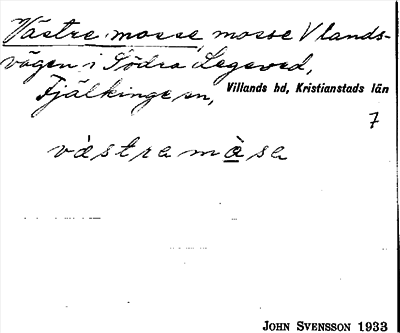 Västre mosse, mosse V lands-
vägen i Södra Legeved,
Fjälkinge sn, Villands hd, Kristianstads län
7
västramåse
JOHN SVENSSON 1933